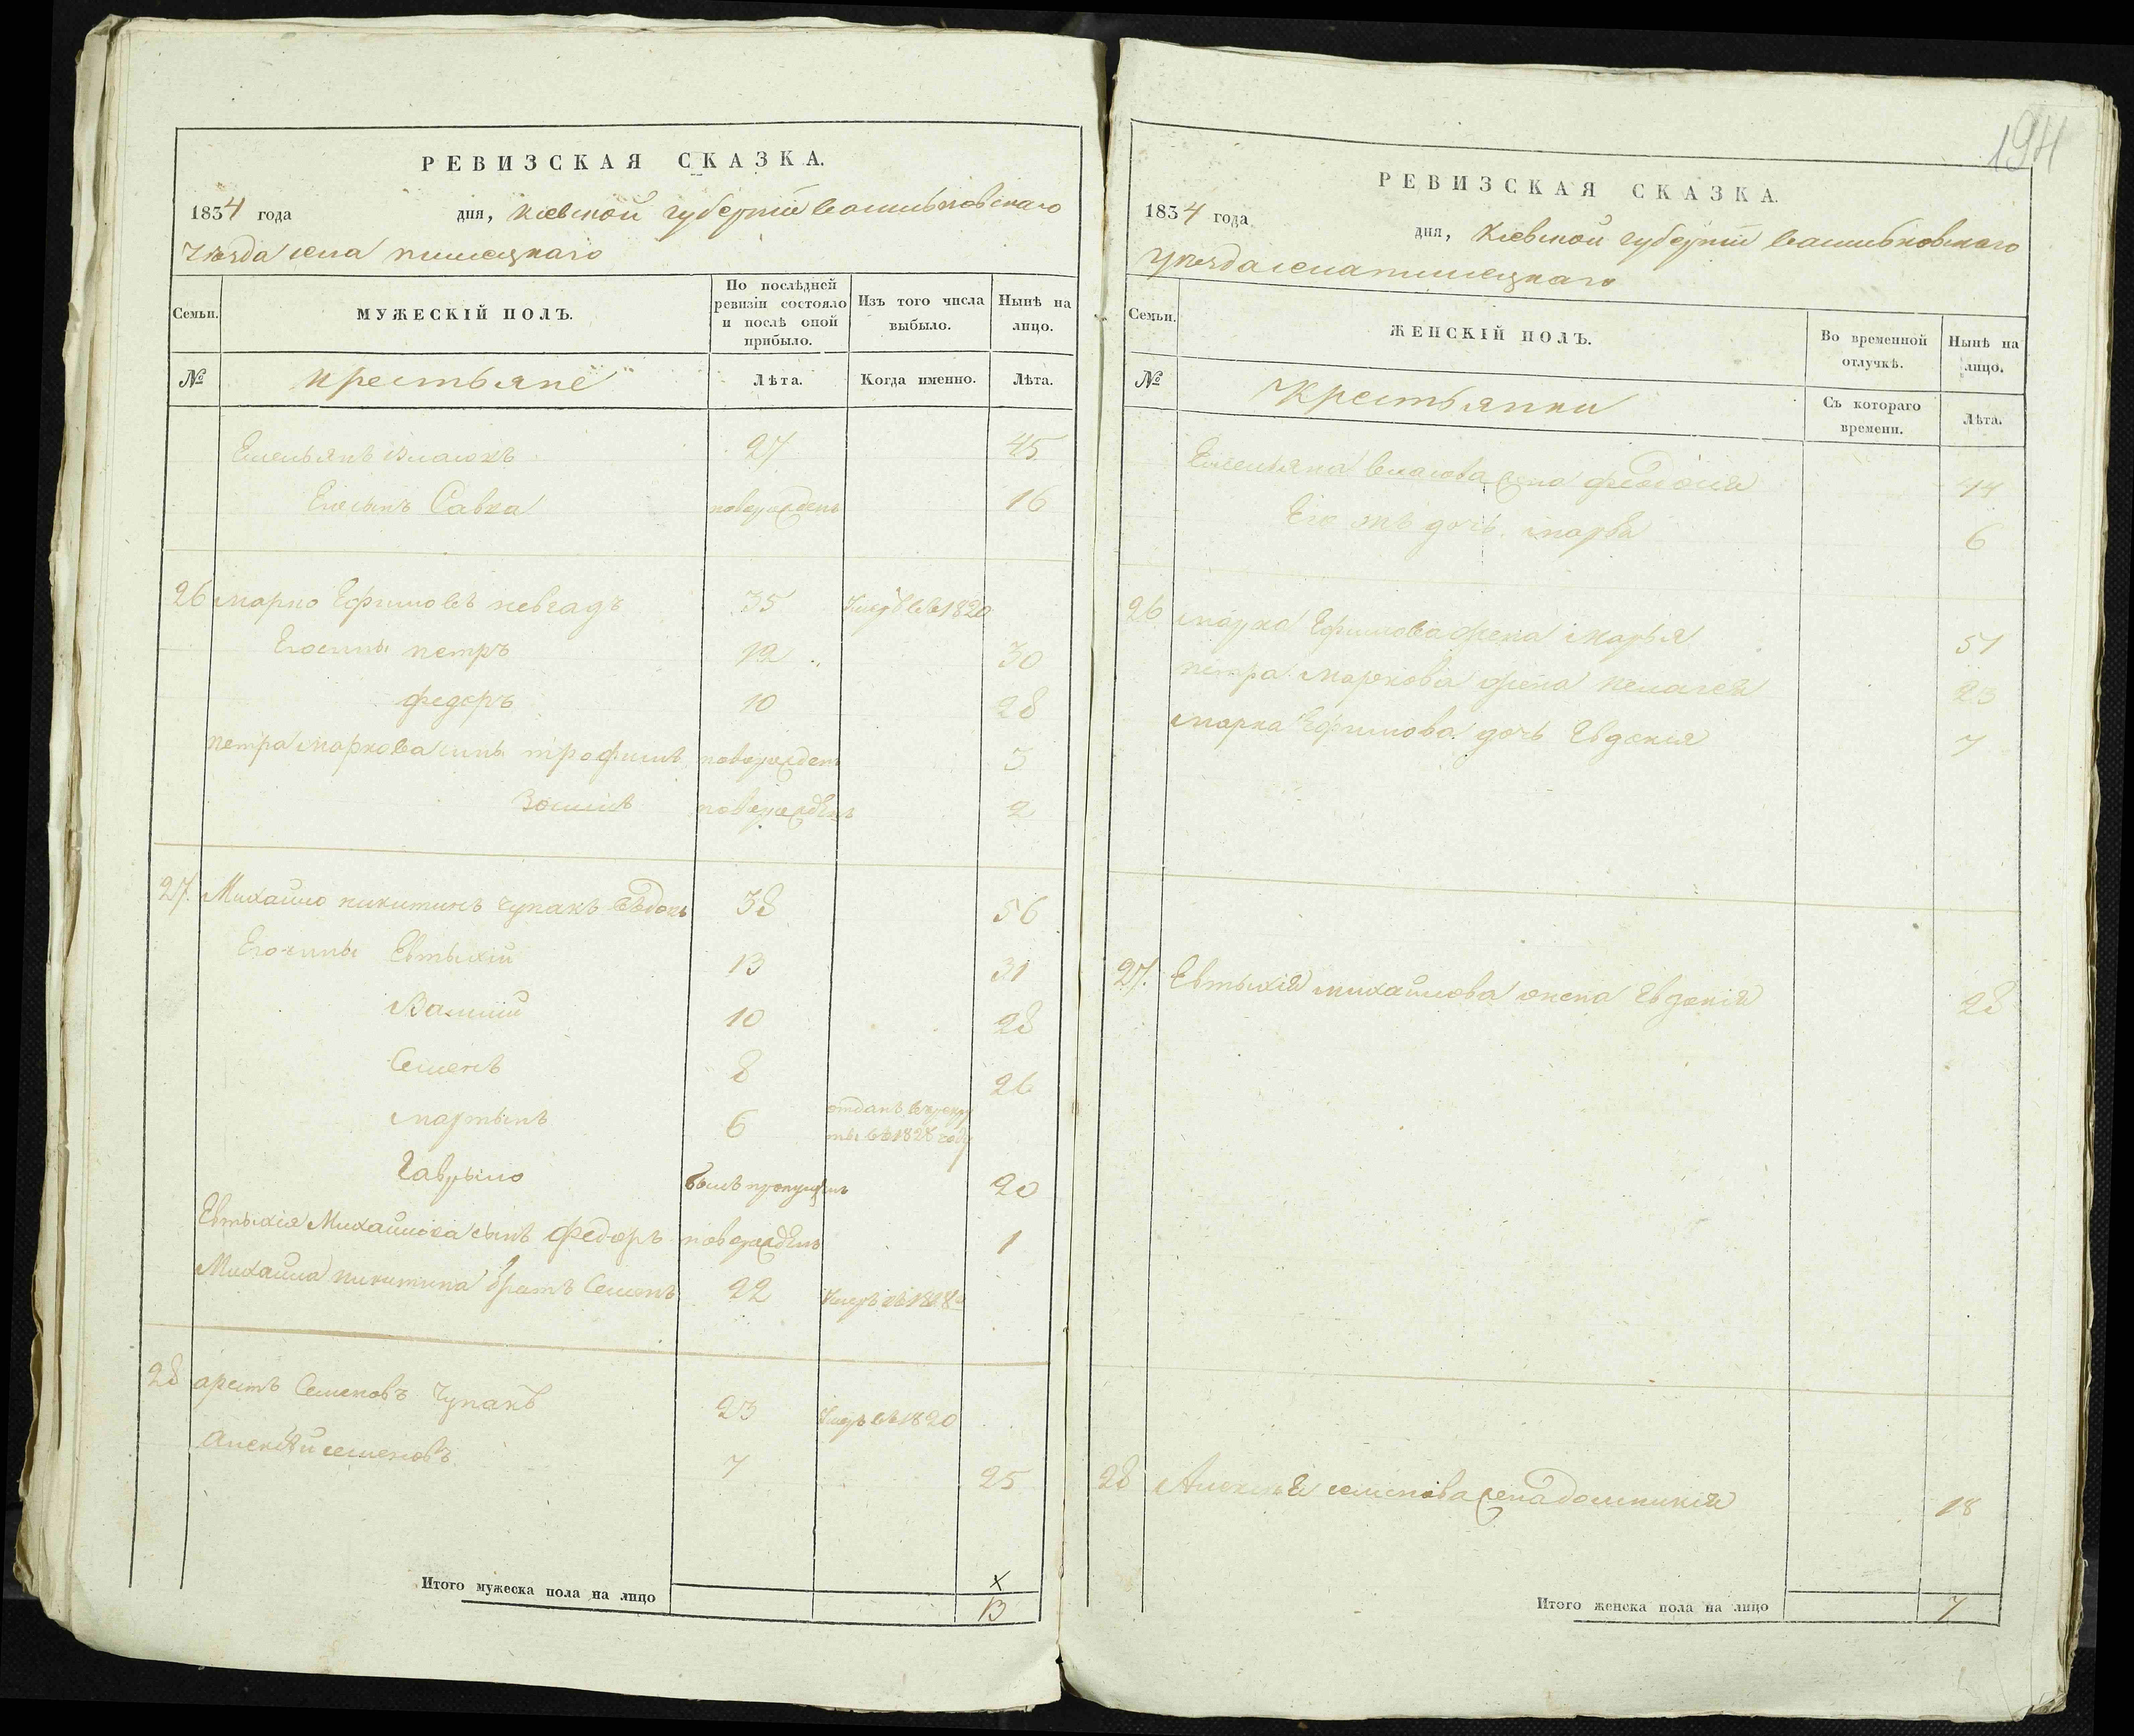 РЕВИЗСКАЯ СКАЗКА.
1834 года дня, Кіевской губерніи Васильковскаго
уѣзда села
Семьи. МУЖЕСКІЙ ПОЛЪ. По послѣдней ревизіи состояло и послѣ оной прибыло. Изъ того числа выбыло. Нынѣ на лицо.
№ крестьяне Лѣта. Когда именно. Лѣта.
Емельянъ 27 45
Его сынъ Савка новорожденъ 16
26 Марко Ефимовъ 35 Умеръ въ 1820
Его сыны Петръ 12 30
Федоръ 10 28
Петра Маркова сыны Трофимъ новорожденъ 3
новорожденъ 2
27. Михайло Никитинъ Чупакъ вдовъ 38 56
Его сыны Евтыхій 13 31
Василій 10 28
Семенъ 8 26
Мартынъ 6 отданъ въ рекру
ты въ 1828 году
Гаврыло былъ пропущенъ 20
Евтыхія Михайлова сынъ Федоръ новорожденъ 1
Михайла Никитина братъ Семенъ 22 Умеръ въ 1818
28 Семеновъ Чупакъ 23 Умеръ въ 1820
Алексѣй Семеновъ 7 25
х
Итого мужеска пола на лицо 13
194
РЕВИЗСКАЯ СКАЗКА.
1834 года дня, Кіевской губерніи Васильковскаго
уѣзда села
Семьи. ЖЕНСКІЙ ПОЛЪ. Во временной отлучкѣ. Нынѣ на лицо.
№ Крестьянки Съ котораго времени. Лѣта.
Емельяна Власова жена Феодосія 44
Его жъ дочь Марѳа 6
26 Марка Ефимова жена Марья 51
Петра Маркова жена Пелагея 23
Марка Ефимова дочь Евдокія 7
27. Евтыхія Михайлова жена Евдокія 28
28 Алексѣя Семенова жена 18
Итого женска пола на лицо 7